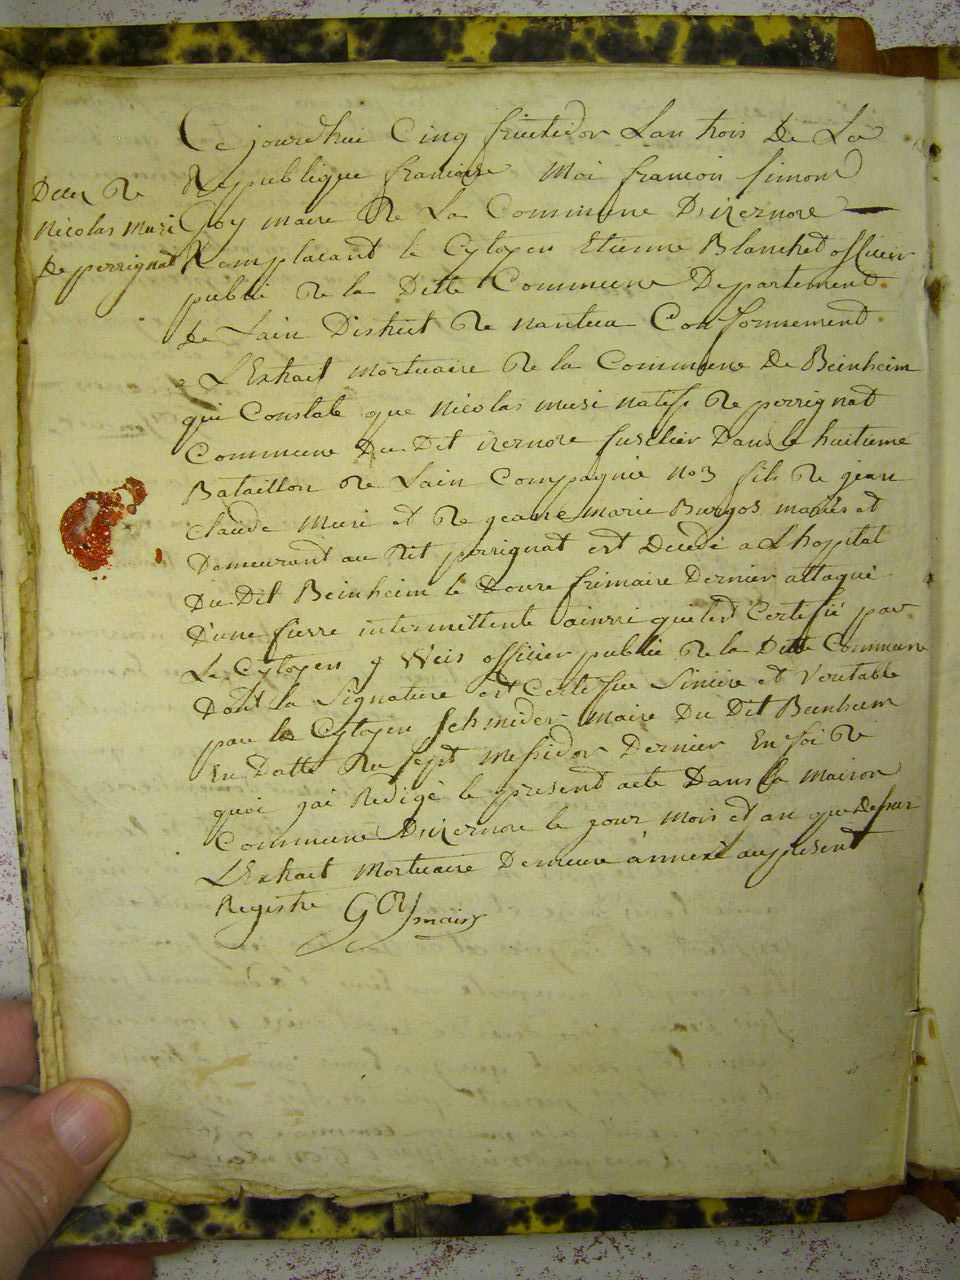 Deces de
Nicolas Musi
de perrignat
Ce jourdhui Cinq fructidor Lan trois De La
Republique francoise Moi francois simond
Goy maire De La Commune Dizernore
Remplacant le Cytoyen Etienne Blanchet officier
public De la Ditte Commune Departement
de Lain District De nantua Conformement
a L'Extrait Mortuaire De la Commune De Beinheim
qui Constate que Nicolas musi natif De perrignat
Commune Du Dit izernore fuselier Dans le huitieme
Bataillon De Lain Compagnie no 3 fils De jean
Claude Musi et De jeane marie Burgos mariés et
Demeurant au Dit perrignat est Décédé a L'hopital
Du Dit Beinheim le Douze frimaire Dernier attaqué
D'une fievre intermittente ainsi qu'il est Certifié par
Le Cytoyen j Weis officier public De la Ditte Commune
Dont la Signature est Certifiée Sincere et Veritable
par le Cytoyen Schmider maire Du Dit Beinheim
En Datte Du sept Messidor Dernier En foi De
quoi jai Redigé le present acte Dans la maison
Commune Dizernore le jour mois et an que Dessus
L'Extrait Mortuaire Demeure annexé au present
Registre GOY maire